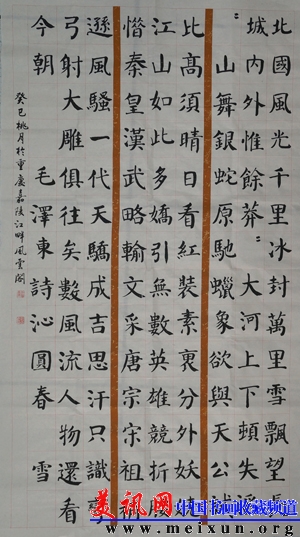 北國風光千里冰封萬里雪飄望長
城內外惟餘莽〻大河上下頓失滔
〻山舞銀蛇原馳蠟象欲與天公試
比高須晴日看紅裝素裹分外妖嬈
江山如此多嬌引無數英雄競折腰
惜秦皇漢武略輸文采唐宗宋祖稍
遜風騷一代天驕成吉思汗只識彎
弓射大雕俱往矣數風流人物還看
今朝 毛澤東詩沁圓春 雪
癸巳桃月於重慶嘉陵江畔風雲閣
美讯网 中国书画收藏频道
www.meixun.org